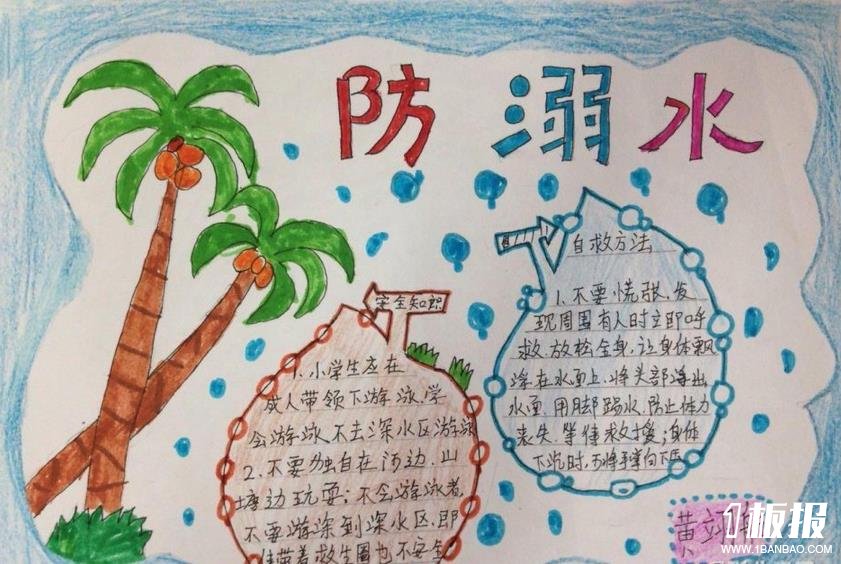 防溺水
自救方法
1.不要慌张,发
现周围有人时立即呼
救,放松全身,让身体飘
浮在水面上,将头部浮出
水面,用脚踢水,防止体力
丧失,等待救援;身体
下沉时,可将手掌向下压
安全知识
1.小学生应在
成人带领下游泳,学
会游泳,不去深水区游泳
2.不要独自在河边、山
塘边玩耍;不会游泳者,
不要游深到深水区,即
使带着救生圈也不安全
黄
1板报
WWW.1BANBAO.COM